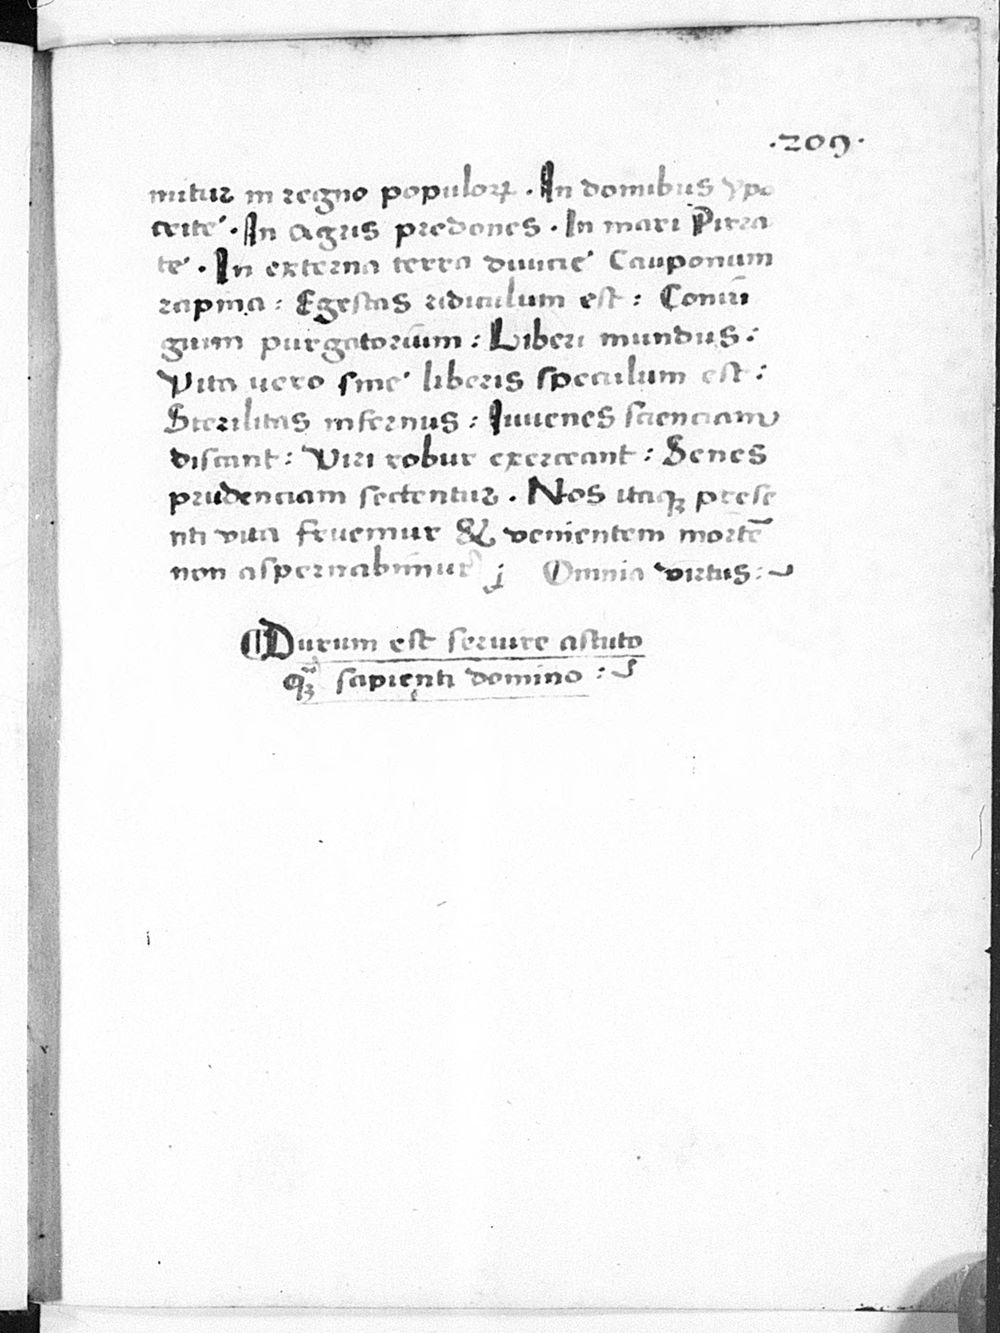 ·209·
nitur in regno populoꝝ · In domibus ypo
crite · In agris predones · In mari Pirra
te · In externa terra diuicie Cauponum
rapina : Egestas ridiculum est : Coniu
gium purgatorium : Liberi mundus :
Vita uero sine liberis speculum est :
Sterilitas infernus : Iuuenes scienciam
discant : Viri robur exerceant : Senes
prudenciam sectentur . Nos itaqꝫ prese
nti vita fruemur & venientem mortē
non aspernabimur ; Omnia virtus :
Durum est seruire astuto
qꝫ sapienti domino :